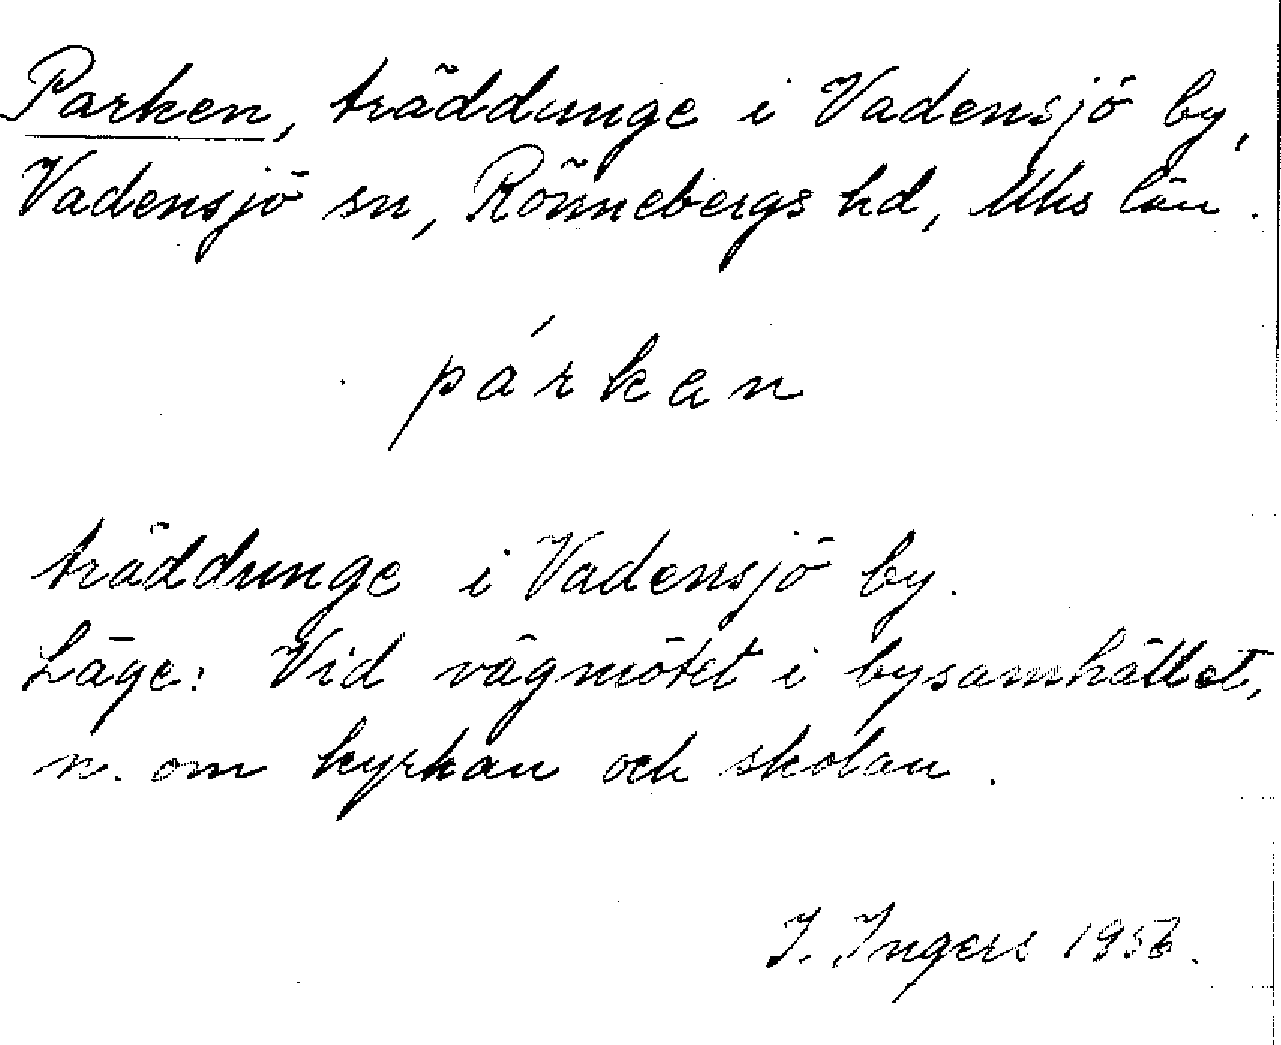 Parken, träddunge i Vadensjö by,
Vadensjö sn, Rönnebergs hd, Mhs län.
párkan
träddunge i Vadensjö by.
Läge: Vid vägmötet i bysamhället,
n. om kyrkan och skolan.
I. Ingers